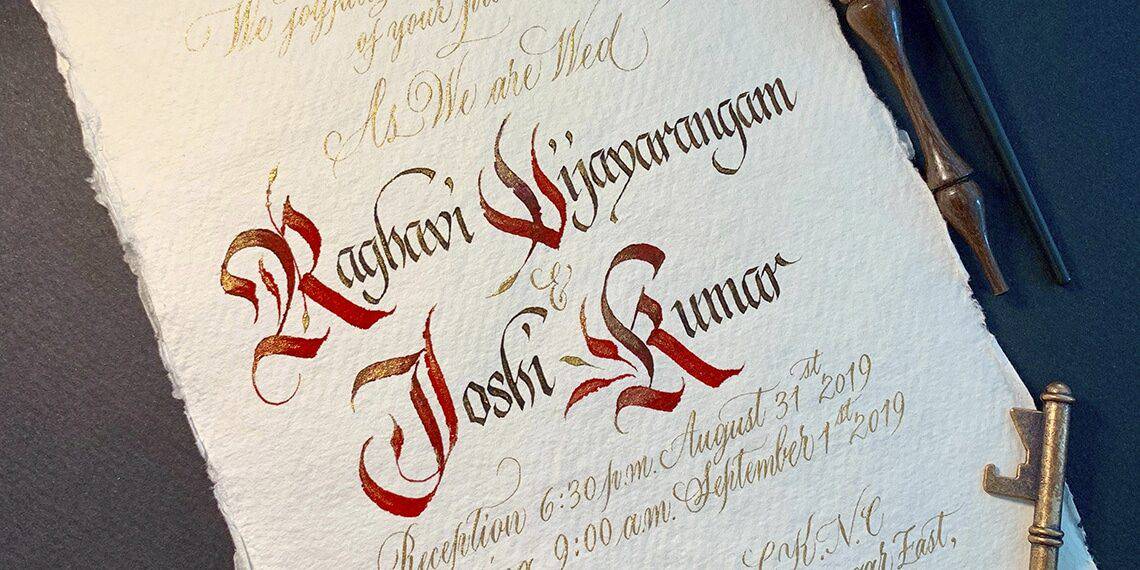 We
of your
As We are Wed
Raghavi Vijayarangam
&
Joshi Kumar
Reception 6:30 p.m. August 31st 2019
9:00 a.m. September 1st 2019
K.N.C
East,